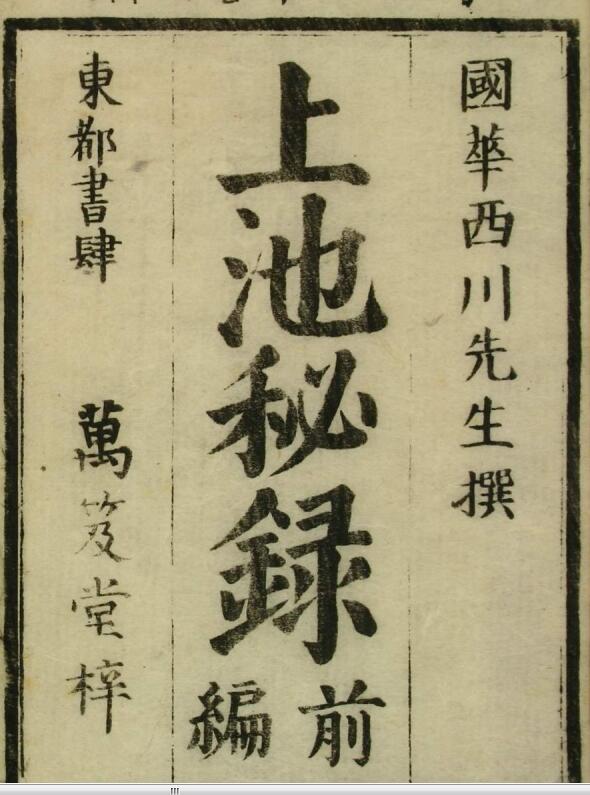 國華西川先生撰
上池秘録
前編
東都書肆 萬笈堂梓